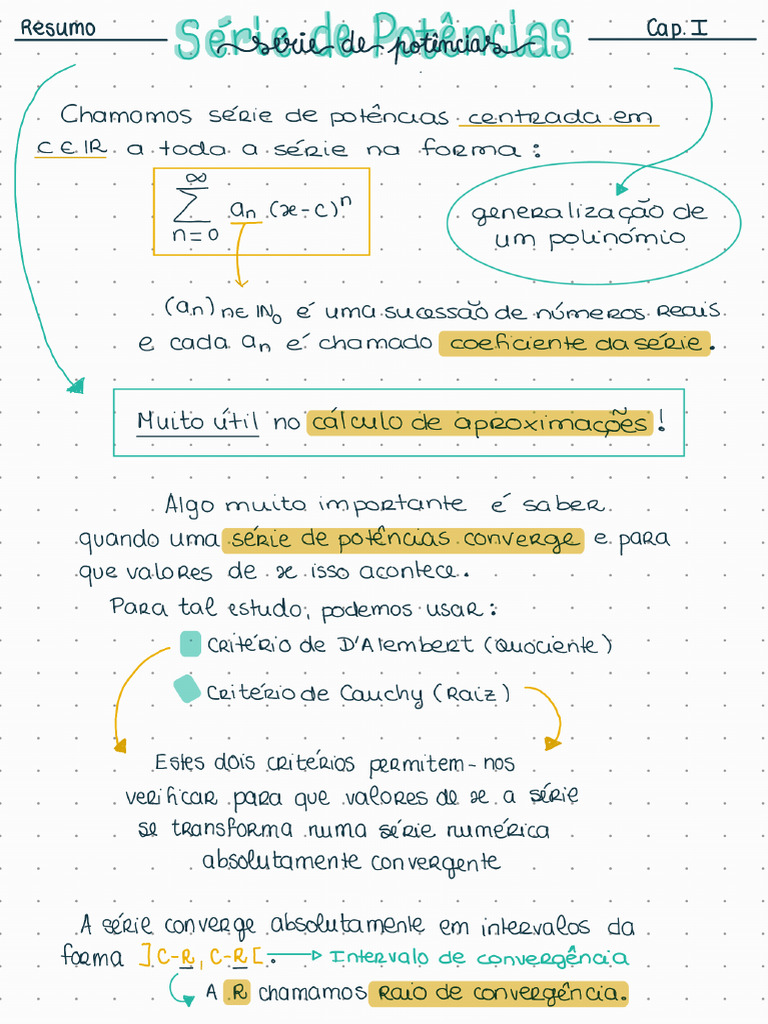 Resumo
Série de Potências
série de potências
Cap. I
Chamamos série de potências centrada em
C ∈ IR a toda a série na forma:
∞
∑ an (x-c)^n
n=0
generalização de
um polinómio
(an) n∈ IN₀ é uma sucessão de números reais
e cada an é chamado coeficiente da série.
Muito útil no cálculo de aproximações!
Algo muito importante é saber
quando uma série de potências converge e para
que valores de x isso acontece.
Para tal estudo, podemos usar:
Critério de D'Alembert (Quociente)
Critério de Cauchy (Raiz)
Estes dois critérios permitem-nos
verificar para que valores de x a série
se transforma numa série numérica
absolutamente convergente
A série converge absolutamente em intervalos da
forma ]C-R, C-R[. → Intervalo de convergência
A R chamamos Raio de convergência.